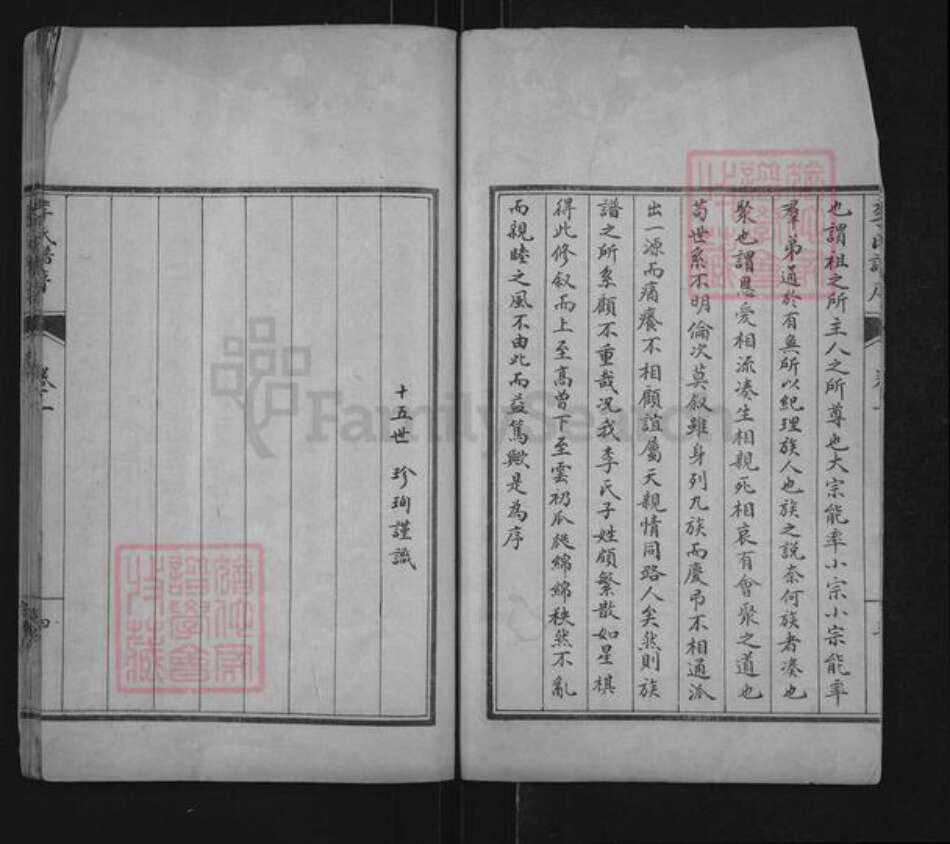 也謂祖之所主人之所尊也大宗能率小宗小宗能率
羣弟通於有無所以紀理族人也族之說奈何族者湊也
聚也謂恩愛相流湊生相親死相哀有會聚之道也
茍世系不明倫次莫叙雖身列九族而慶弔不相通派
出一源而痛癢不相顧誼屬天親情同路人矣然則族
譜之所系顧不重哉况我李氏子姓頗繁散如星棋
得此修叙而上至高曾下至雲礽瓜瓞綿綿秩然不亂
而親睦之風不由此而益篤歟是為序
十五世 珍珣謹識
李氏譜序
卷一
四
FamilySearch